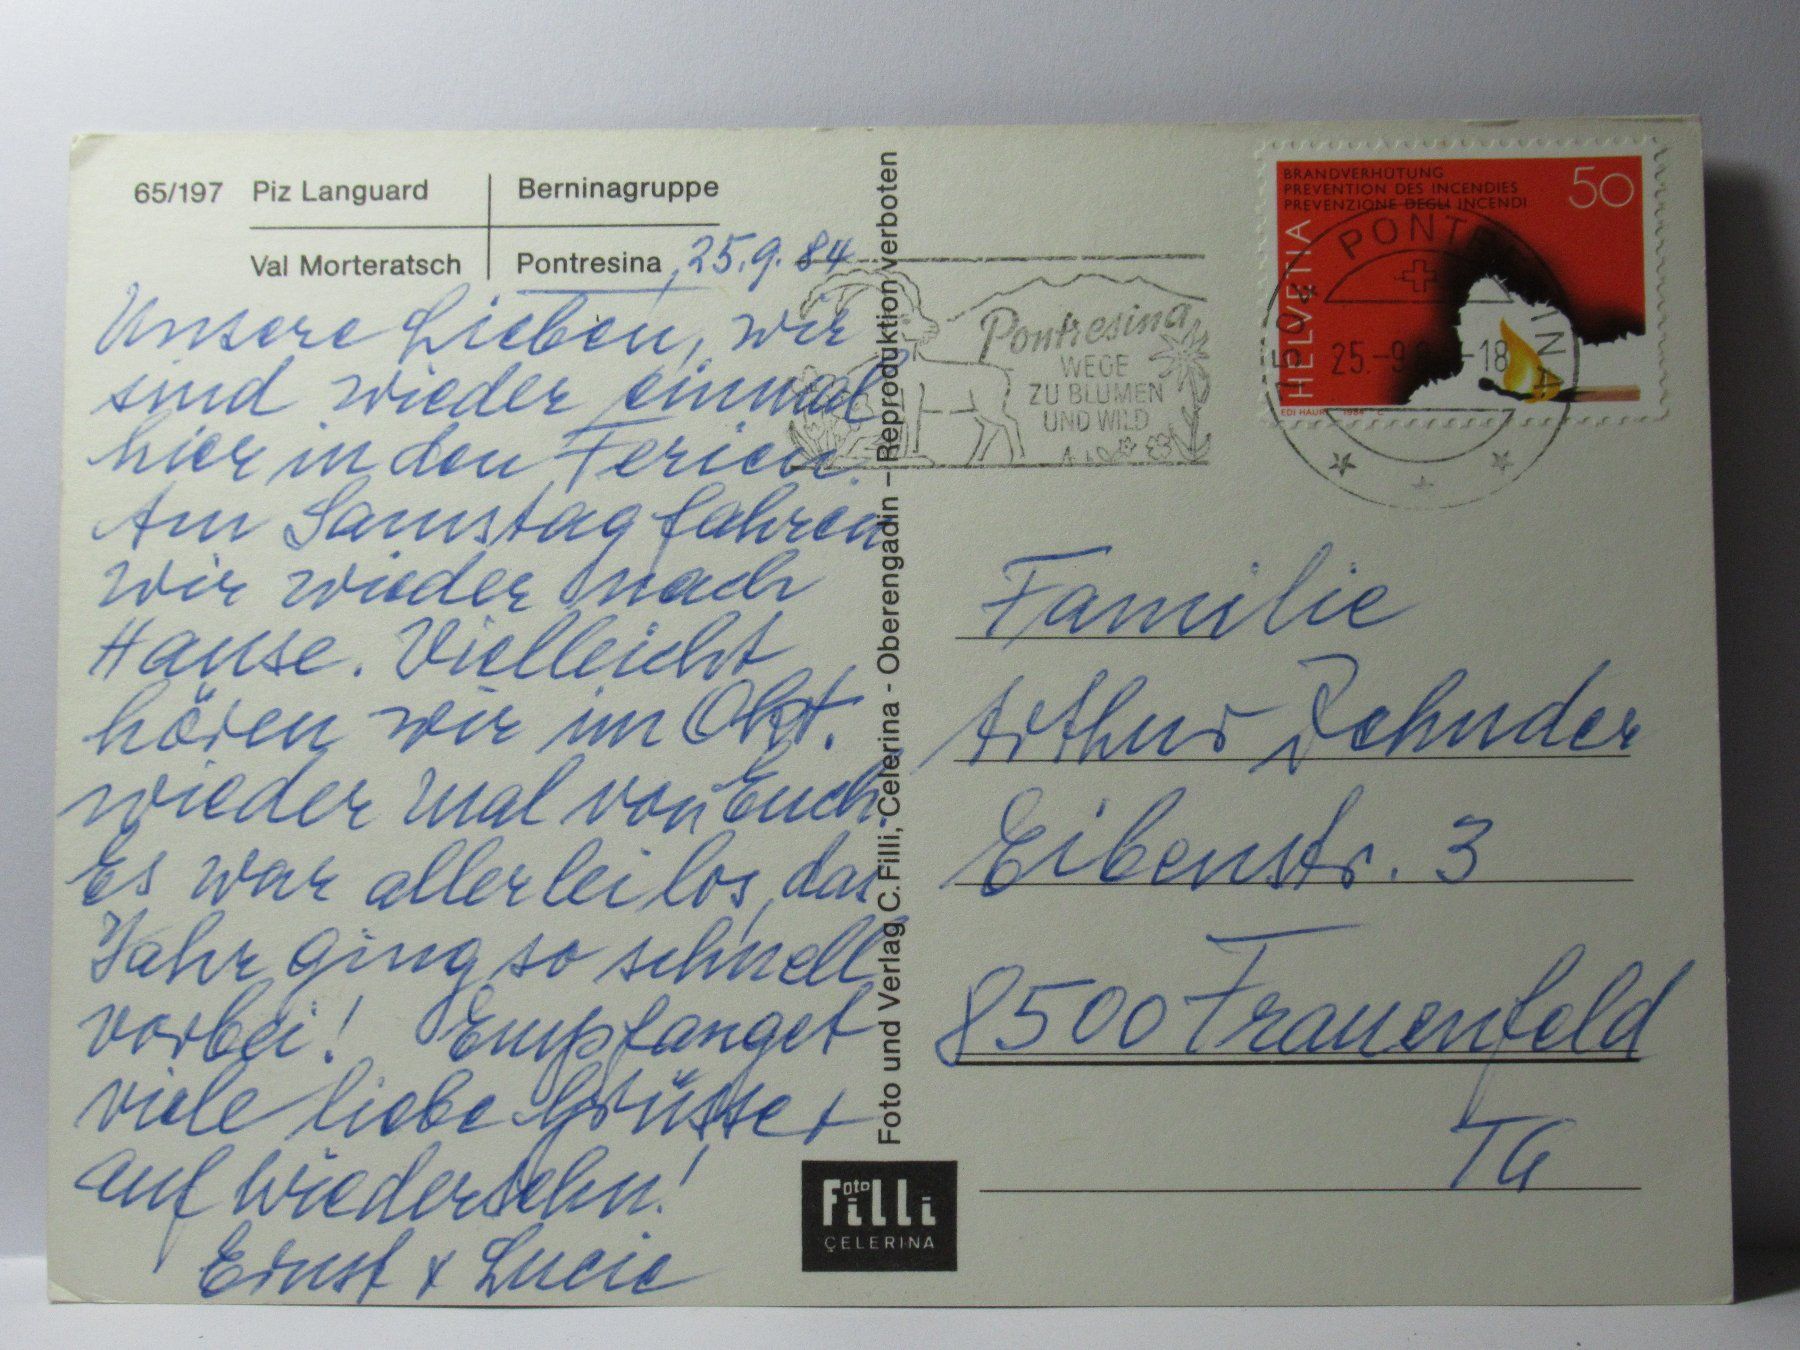 65/197 Piz Languard Berninagruppe
Val Morteratsch Pontresina, 25.9.84
Unsere Lieben, wir
sind wieder einmal
hier in den Ferien.
Am Samstag fahren
wir wieder nach
Hause. Vielleicht
hören wir im Okt.
wieder mal von Euch
Es war allerlei los, das
Jahr ging so schnell
vorbei! Empfanget
viele liebe Grüsse +
auf Wiedersehn!
Ernst + Lucie
Foto und Verlag C. Filli, Celerina - Oberengadin – Reproduktion verboten
Foto
Filli
ÇELERINA
Pontresina
WEGE
ZU BLUMEN
UND WILD
BRANDVERHÜTUNG
PREVENTION DES INCENDIES
PREVENZIONE DEGLI INCENDI
50
HELVETIA
EDI HAURI 1984 C
PONTRESINA
25.-9 -18
Familie
Arthur Zehnder
Eibenstr. 3
8500 Frauenfeld
TG